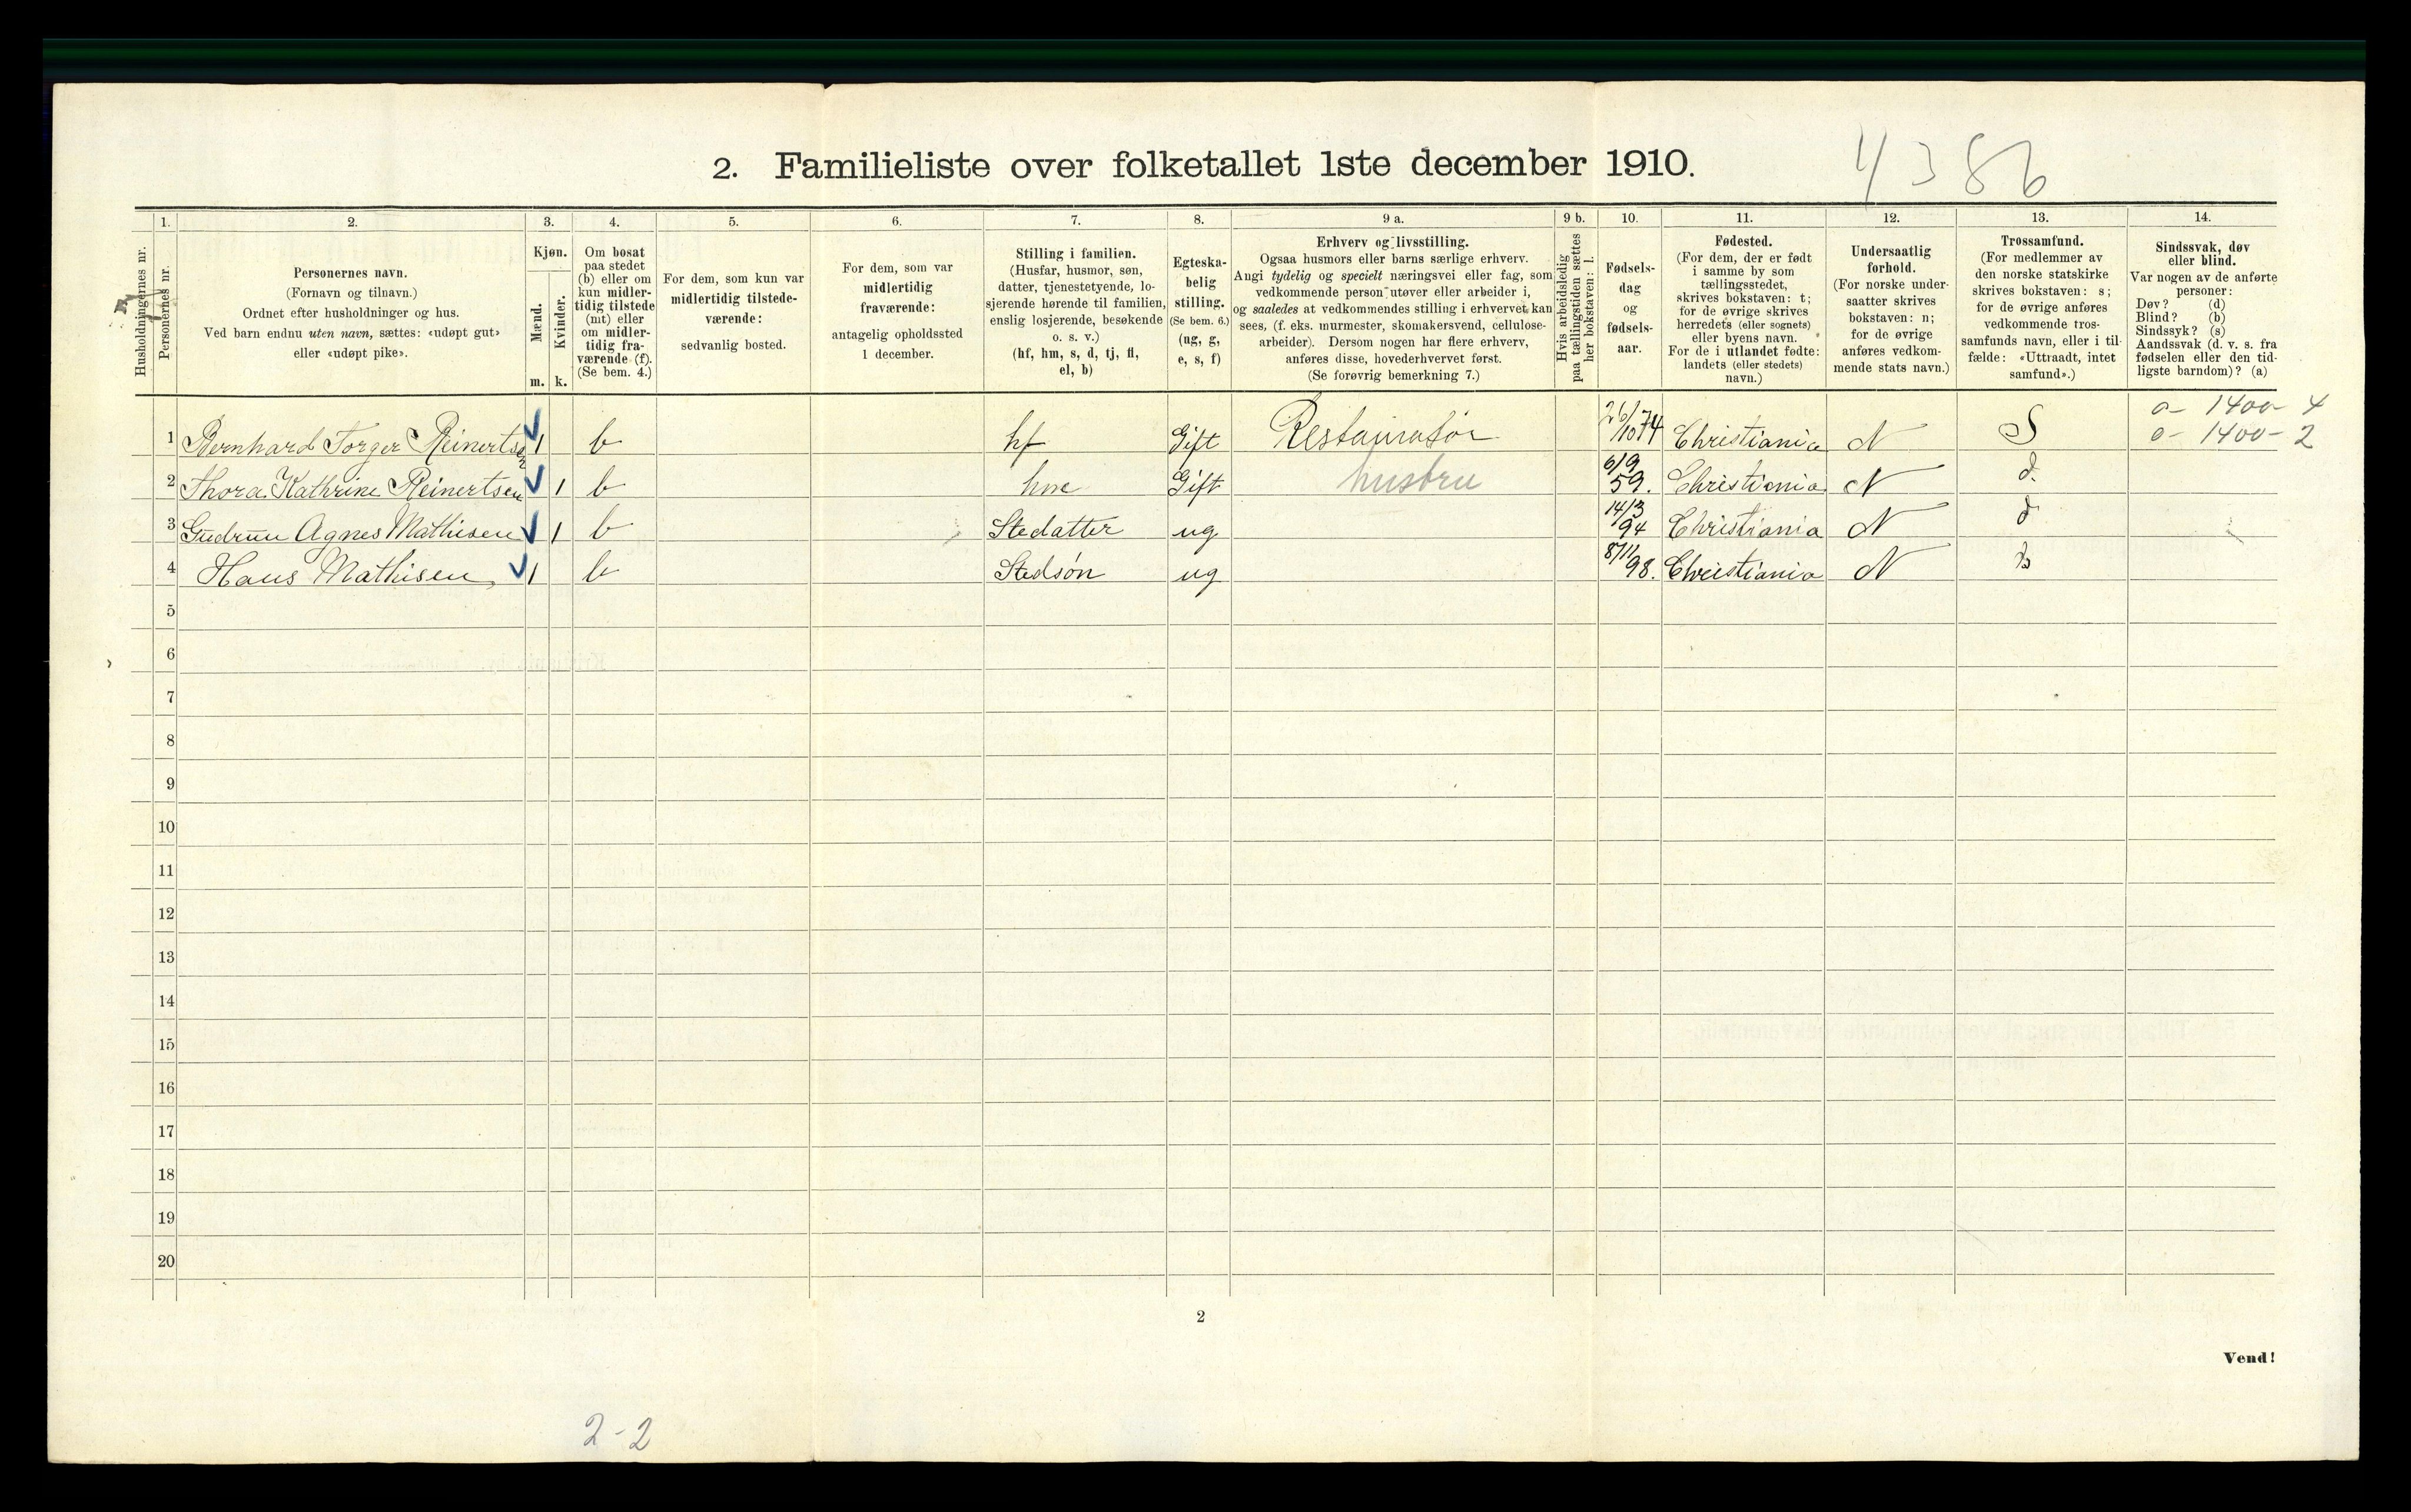 4386
2. Familieliste over folketallet 1ste december 1910.
1. 2. 3. 4. 5. 6. 7. 8. 9 a. 9 b. 10. 11. 12. 13. 14.
Husholdningernes nr.
Personernes nr.
Personernes navn.
(Fornavn og tilnavn.)
Ordnet efter husholdninger og hus.
Ved barn endnu uten navn, sættes: «udøpt gut»
eller «udøpt pike».
Kjøn.
Mænd.
Kvinder.
m. k.
Om bosat
paa stedet
(b) eller om
kun midler-
tidig tilstede
(mt) eller
om midler-
tidig fra-
værende (f).
(Se bem. 4.)
For dem, som kun var
midlertidig tilstede-
værende:
sedvanlig bosted.
For dem, som var
midlertidig
fraværende:
antagelig opholdssted
1 december.
Stilling i familien.
(Husfar, husmor, søn,
datter, tjenestetyende, lo-
sjerende hørende til familien,
enslig losjerende, besøkende
o. s. v.)
(hf, hm, s, d, tj, fl,
el, b)
Egteska-
belig
stilling.
(Se bem. 6.)
(ug, g,
e, s, f)
Erhverv og livsstilling.
Ogsaa husmors eller barns særlige erhverv.
Angi tydelig og specielt næringsvei eller fag, som
vedkommende person utøver eller arbeider i,
og saaledes at vedkommendes stilling i erhvervet kan
sees, (f. eks. murmester, skomakersvend, cellulose-
arbeider). Dersom nogen har flere erhverv,
anføres disse, hovederhvervet først.
(Se forøvrig bemerkning 7.)
Hvis arbeidsledig
paa tællingstiden sættes
her bokstaven: l.
Fødsels-
dag
og
fødsels-
aar.
Fødested.
(For dem, der er født
i samme by som
tællingsstedet,
skrives bokstaven: t;
for de øvrige skrives
herredets (eller sognets)
eller byens navn.
For de i utlandet fødte:
landets (eller stedets)
navn.)
Undersaatlig
forhold.
(For norske under-
saatter skrives
bokstaven: n;
for de øvrige
anføres vedkom-
mende stats navn.)
Trossamfund.
(For medlemmer av
den norske statskirke
skrives bokstaven: s;
for de øvrige anføres
vedkommende tros-
samfunds navn, eller i til-
fælde: «Uttraadt, intet
samfund».)
Sindssvak, døv
eller blind.
Var nogen av de anførte
personer:
Døv? (d)
Blind? (b)
Sindssyk? (s)
Aandssvak (d. v. s. fra
fødselen eller den tid-
ligste barndom)? (a)
o- 1400- 4
1 Bernhard Torger Reinertsen 1 b hf Gift Restauratør 26/10 74 Christiania N S o- 1400- 2
2 Thora Kathrine Reinertsen 1 b Gift husbru 6/9 59. Christiania N d.
3 Gudrun Agnes Mathisen 1 b Stedatter ug 14/3 94 Christiania N d
4 Hans Mathisen 1 b Stedsøn ug 8/11 98. Christiania N
5
6
7
8
9
10
11
12
13
14
15
16
17
18
19
20
2
Vend!
2-2